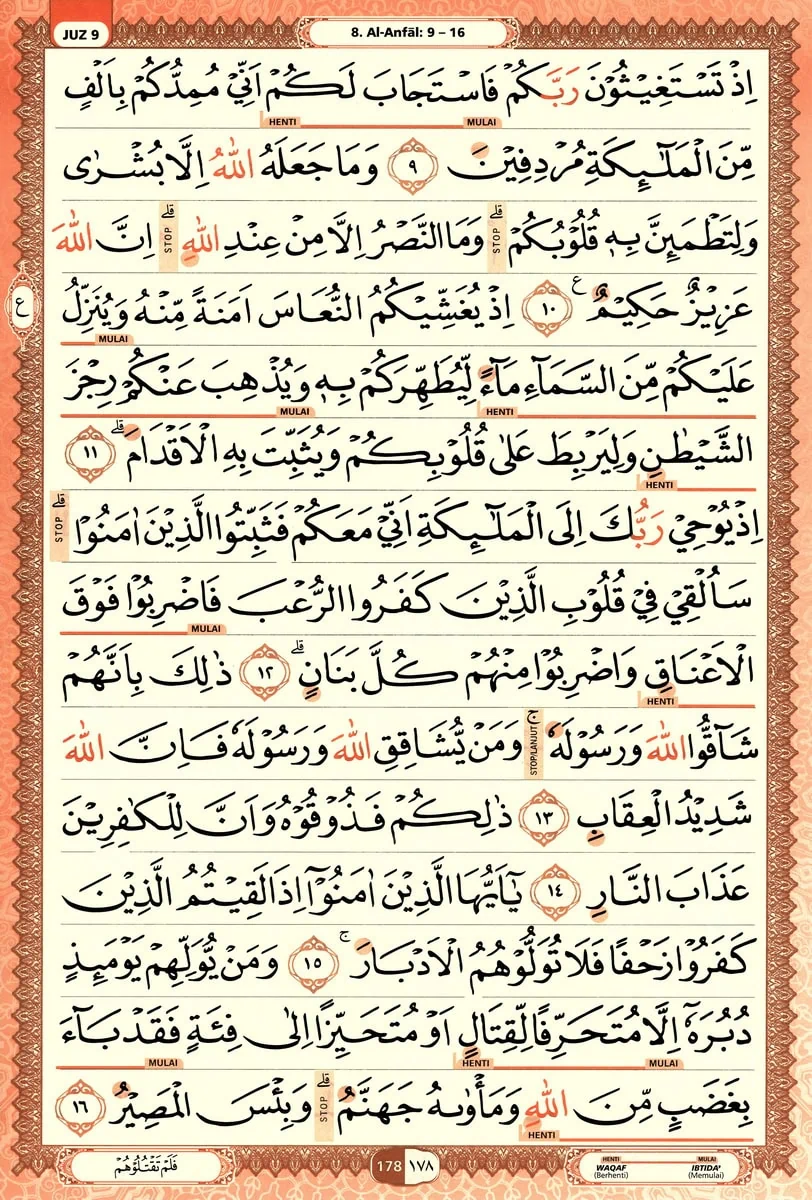 JUZ 9
8. Al-Anfāl: 9 – 16
اِذْ تَسْتَغِيْثُوْنَ رَبَّكُمْ فَاسْتَجَابَ لَكُمْ اَنِّيْ مُمِدُّكُمْ بِاَلْفٍ
HENTI MULAI
مِّنَ الْمَلٰۤىِٕكَةِ مُرْدِفِيْنَ ٩ وَمَا جَعَلَهُ اللّٰهُ اِلَّا بُشْرٰى
وَلِتَطْمَىِٕنَّ بِهٖ قُلُوْبُكُمْ ۗ STOP وَمَا النَّصْرُ اِلَّا مِنْ عِنْدِ اللّٰهِ ۗ STOP اِنَّ اللّٰهَ
ع
عَزِيْزٌ حَكِيْمٌ ع ١٠ اِذْ يُغَشِّيْكُمُ النُّعَاسَ اَمَنَةً مِّنْهُ وَيُنَزِّلُ
MULAI
عَلَيْكُمْ مِّنَ السَّمَاۤءِ مَاۤءً لِّيُطَهِّرَكُمْ بِهٖ وَيُذْهِبَ عَنْكُمْ رِجْزَ
HENTI MULAI
الشَّيْطٰنِ وَلِيَرْبِطَ عَلٰى قُلُوْبِكُمْ وَيُثَبِّتَ بِهِ الْاَقْدَامَ ۗ ١١
HENTI
اِذْ يُوْحِيْ رَبُّكَ اِلَى الْمَلٰۤىِٕكَةِ اَنِّيْ مَعَكُمْ فَثَبِّتُوا الَّذِيْنَ اٰمَنُوْا ۗ STOP
سَاُلْقِيْ فِيْ قُلُوْبِ الَّذِيْنَ كَفَرُوا الرُّعْبَ فَاضْرِبُوْا فَوْقَ
MULAI
الْاَعْنَاقِ وَاضْرِبُوْا مِنْهُمْ كُلَّ بَنَانٍ ۗ ١٢ ذٰلِكَ بِاَنَّهُمْ
HENTI
شَاۤقُّوا اللّٰهَ وَرَسُوْلَهٗ ۚ STOP/LANJUT وَمَنْ يُّشَاقِقِ اللّٰهَ وَرَسُوْلَهٗ فَاِنَّ اللّٰهَ
شَدِيْدُ الْعِقَابِ ١٣ ذٰلِكُمْ فَذُوْقُوْهُ وَاَنَّ لِلْكٰفِرِيْنَ
عَذَابَ النَّارِ ١٤ يٰٓاَيُّهَا الَّذِيْنَ اٰمَنُوْٓا اِذَا لَقِيْتُمُ الَّذِيْنَ
كَفَرُوْا زَحْفًا فَلَا تُوَلُّوْهُمُ الْاَدْبَارَ ۚ ١٥ وَمَنْ يُّوَلِّهِمْ يَوْمَىِٕذٍ
دُبُرَهٗٓ اِلَّا مُتَحَرِّفًا لِّقِتَالٍ اَوْ مُتَحَيِّزًا اِلٰى فِئَةٍ فَقَدْ بَاۤءَ
MULAI HENTI MULAI
بِغَضَبٍ مِّنَ اللّٰهِ وَمَأْوٰىهُ جَهَنَّمُ ۗ STOP وَبِئْسَ الْمَصِيْرُ ١٦
HENTI
فَلَمْ تَقْتُلُوْهُمْ
178 ١٧٨
HENTI WAQAF (Berhenti)
MULAI IBTIDA' (Memulai)